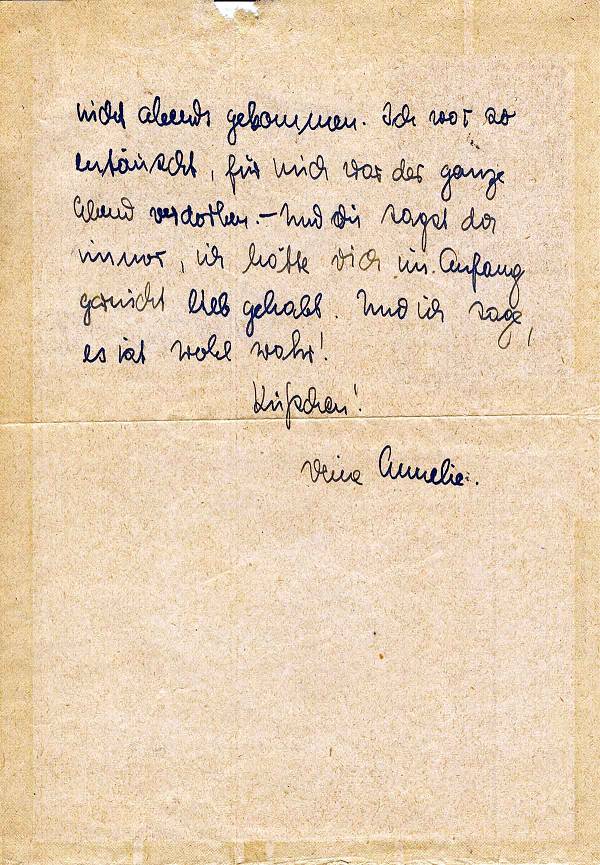 nicht abends gekommen. Ich war so
entäuscht, für mich war der ganze
Abend verdorben. – Und du sagst da
immer, ich hätte dich im Anfang
garnicht lieb gehabt. Und ich sage,
es ist wohl wahr!
Küßchen!
Deine Annelie.